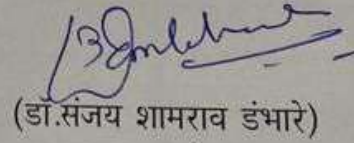 (डॉ.संजय शामराव डंभारे)